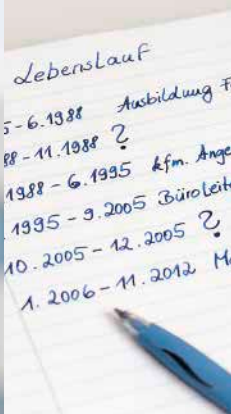 Lebenslauf
5-6.1988 Ausbildung F
88-11.1988 ?
1988-6.1995 kfm. Ange
1995-9.2005 Büroleite
10.2005-12.2005 ?
1.2006-11.2012 Ma